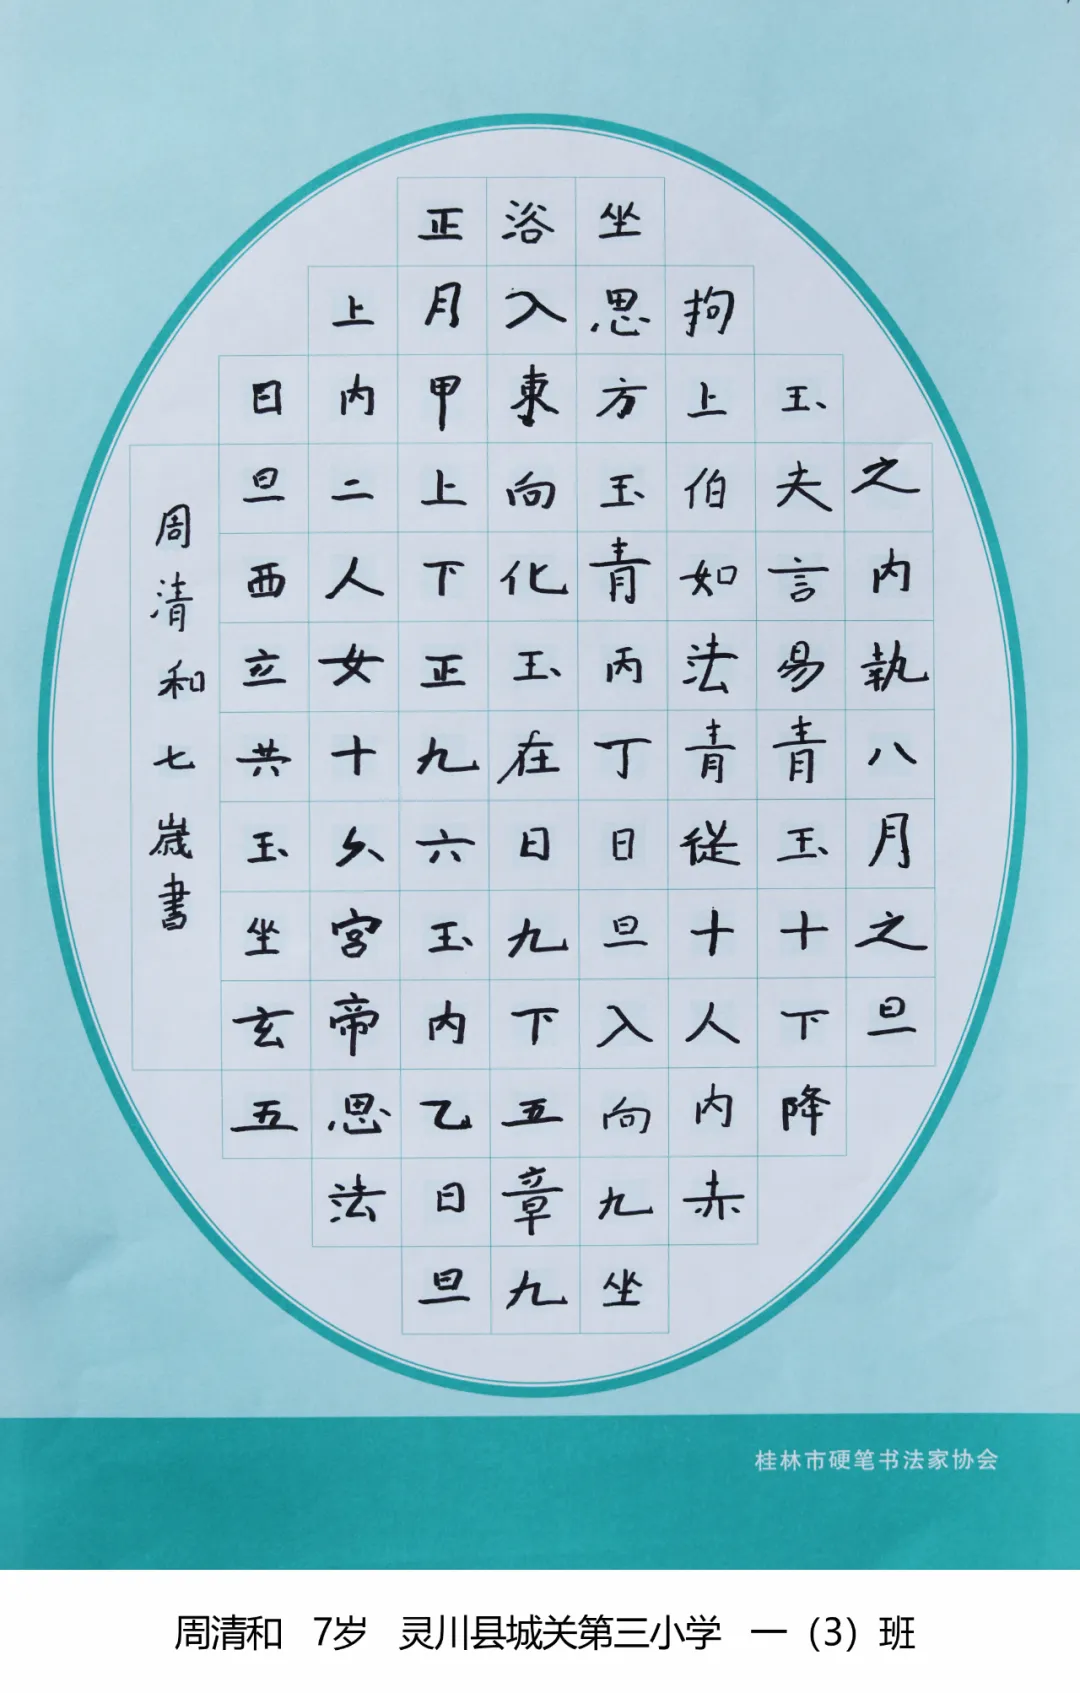 之内執八月之旦
玉夫言易青玉十下降
拘上伯如法青從十人内赤
坐思方玉青丙丁日旦入向九坐
浴入東向化玉在日九下五章九
正月甲上下正九六玉内乙日旦
上内二人女十幺宮帝思法
日旦西立共玉坐玄五
周清和七歲書
桂林市硬笔书法家协会
周清和 7岁 灵川县城关第三小学 一（3）班